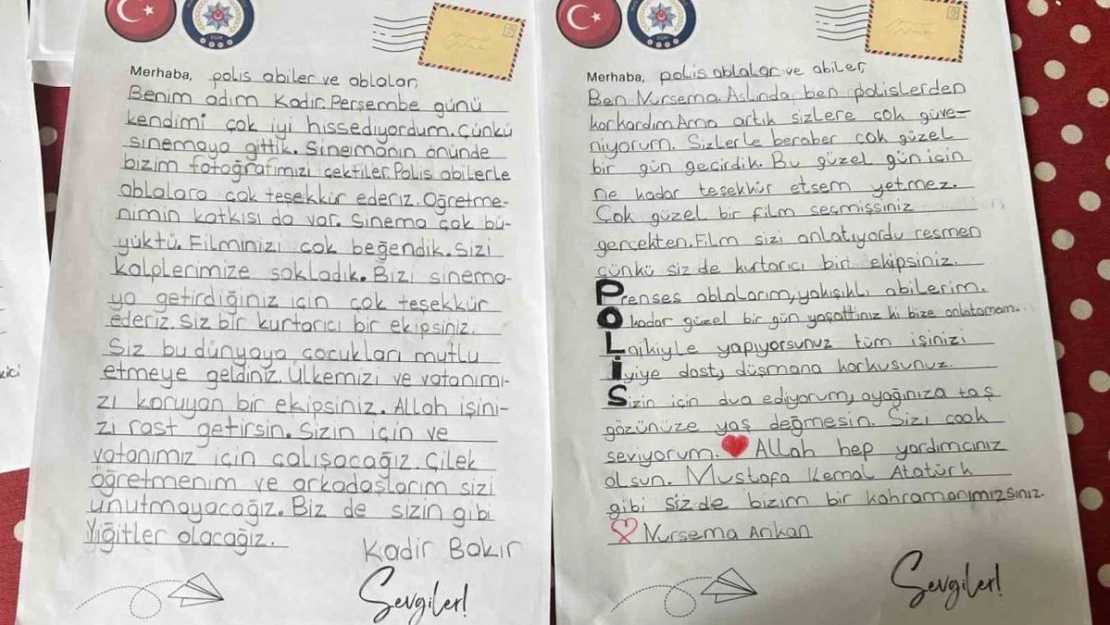 Merhaba, polis abiler ve ablalar,
Benim adım Kadir. Perşembe günü
kendimi çok iyi hissediyordum. Çünkü
sinemaya gittik. Sineimanın önünde
bizim fotoğrafımızı çektiler. Polis abilerle
ablalara çok teşekkür ederiz. Öğretme-
nimin katkısı da var. Sinema çok bü-
yüktü. Filminizi çok beğendik. Sizi
kalplerimize sokladık. Bizi sinema-
ya getirdiğiniz için çok teşekkür
ederiz. Siz bir kurtarıcı bir ekipsiniz.
Siz bu dünyaya çocukları mutlu
etmeye geldiniz. Ülkemizi ve vatanımı-
zı koruyan bir ekipsiniz. Allah işini-
zi rast getirsin. Sizin için ve
vatanımız için çalışacağız. Çilek
öğretmenim ve arkadaşlarım sizi
unutmayacağız. Biz de sizin gibi
Yiğitler olacağız.
Kadir Bakır
Sevgiler!
Merhaba, polis ablalar ve abiler,
Ben Nursema. Aslında ben polislerden
korkardım. Ama artık sizlere çok güve-
niyorum. Sizlerle beraber çok güzel
bir gün geçirdik. Bu güzel gün için
ne kadar teşekkür etsem yetmez.
Çok güzel bir film seçmişsiniz
gerçekten. Film sizi anlatıyordu resmen
çünkü siz de kurtarıcı biri ekipsiniz.
Prenses ablalarım, yakışıklı abilerim.
O kadar güzel bir gün yaşattınız ki bize anlatamam.
Laikiyle yapıyorsunuz tüm işinizi
İyiye dost, düşmana korkusunuz.
Sizin için dua ediyorum, ayağınıza taş
gözünüze yaş değmesin. Sizi çook
seviyorum. Allah hep yardımcınız
olsun. Mustafa Kemal Atatürk
gibi siz de bizim bir kahramanımızsınız.
Nursema Arıkan
Sevgiler!